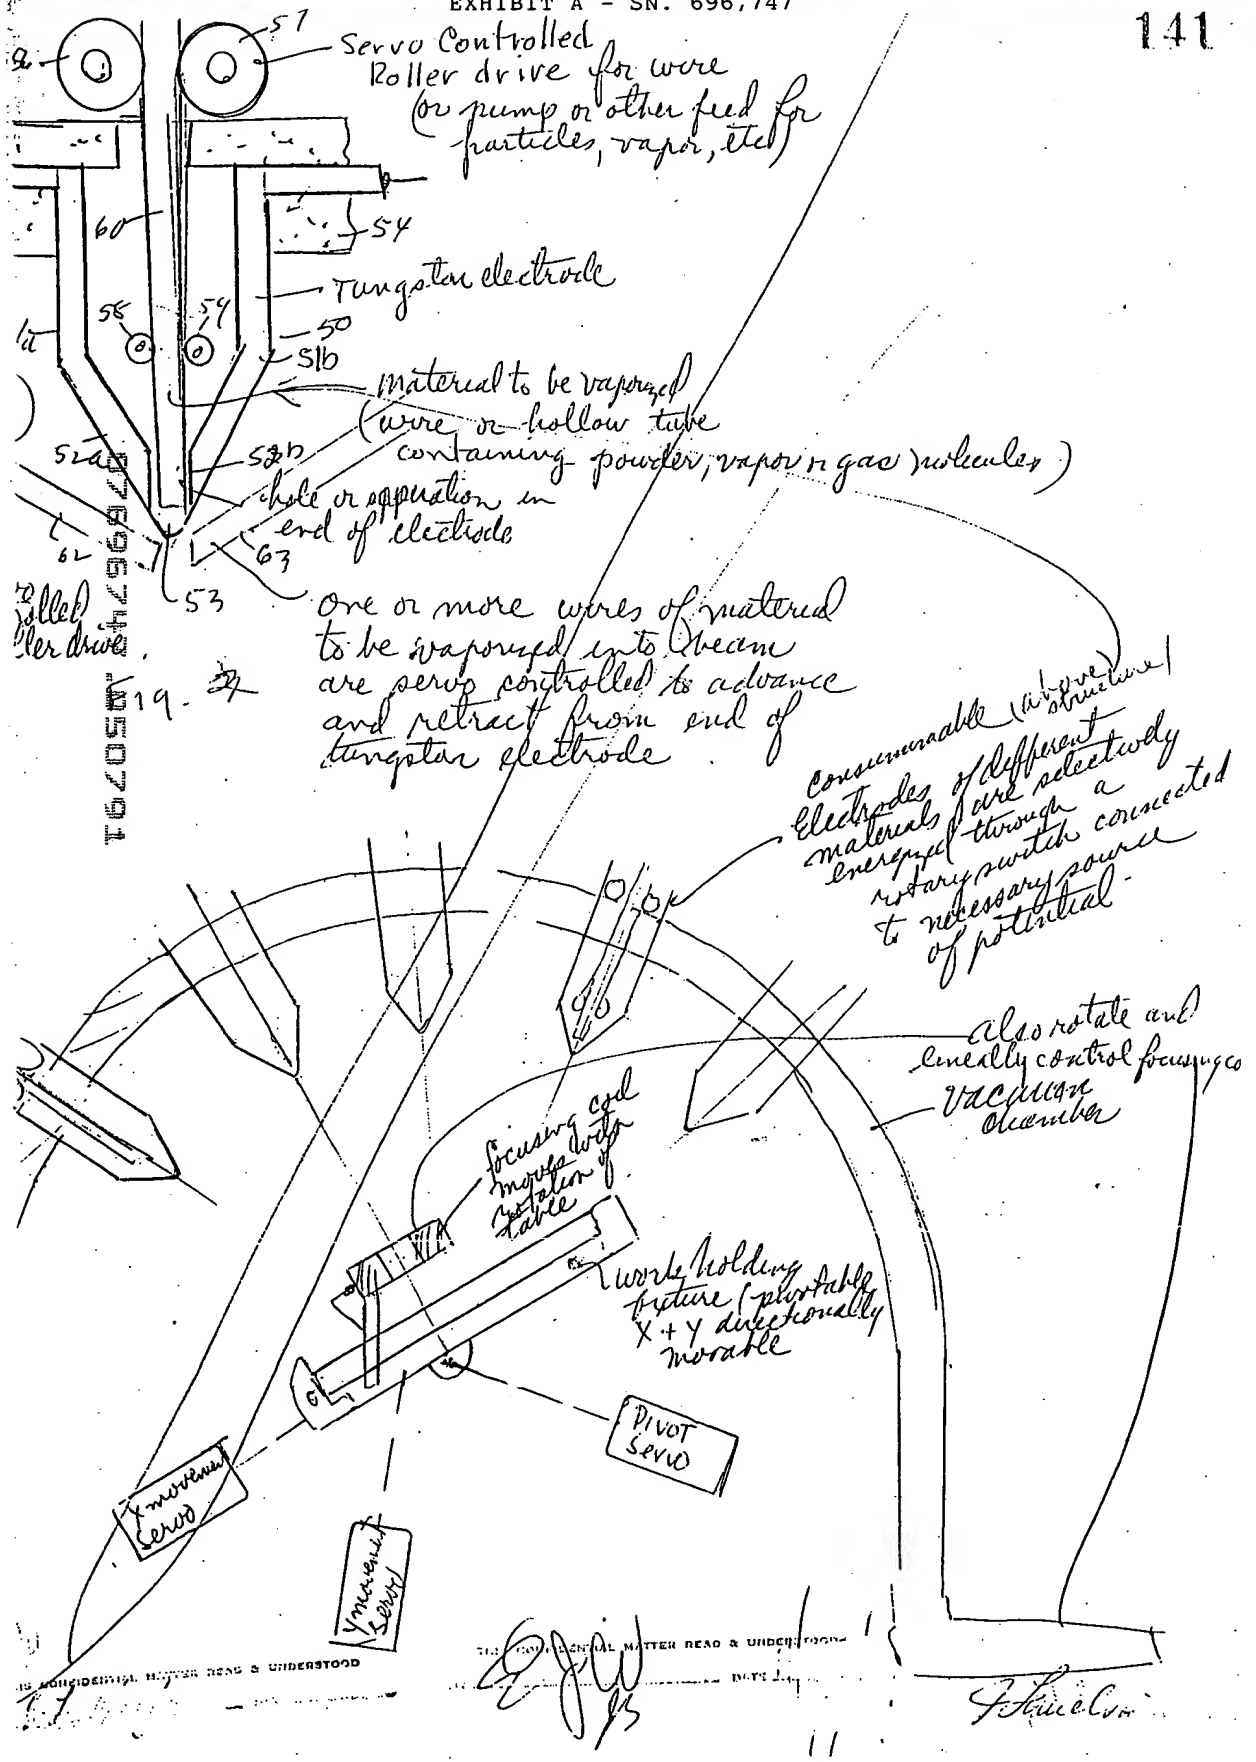 EXHIBIT A - SN. 696,747
141
57
Servo Controlled
Roller drive for wire
(or pump or other feed for
particles, vapor, etc)
60
54
Tungstan electrode
58
59
50
51b
material to be vaporized
(wire or hollow tube
containing powder, vapor or gas molecules)
52a
52b
hole or opperation in
end of electrode
62
63
53
olled
ler drive.
one or more wires of material
to be vaporized into beam
are servo controlled to advance
and retract from end of
tungstan electrode.
consummable (above)
structure
Electrodes of different
materials are selectively
energized through a
rotary switch connected
to necessary source
of potential.
also rotate and
lineally control focusing co
vacuum
chamber
focusing coil
moves with
rotation of
table
work holding
fixture (pivotable
X + Y directionally
movable
Pivot
servo
X movement
servo
Y movement
servo
CONFIDENTIAL MATTER READ & UNDERSTOOD
CONFIDENTIAL MATTER READ & UNDERSTOOD
DATE